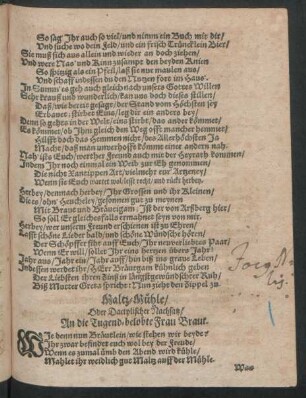 So sag Ihr auch so viel/und nimm ein Buch mit dir/
Und suche wo dein Feld/und ein frisch Trüncklein Bier/
Sie muß sich aus allein und wieder an doch ziehen/
Und wenn Nas' und Kinn zusamp den beyden Knien
So spitzig als ein Pfeil/laß sie nur maulen aus/
Und schatz indessen du den Matzen fort im Haus.
In Summ' es geh auch gleich nach unsers Gottes Willen
Sehr krauß und wunderlich/kan uns doch dieses stillen/
Daß/wie bereit gesagt/der Stand vom Höchsten sey
Erbauet/stirbet Eine/leg dir ein andre bey/
Denn so gehts in der Welt/eine stirbt/das ander kömmet/
Es kömmet/ob Ihm gleich den Weg offt mancher hemmet/
Hilfft doch das Hemmen nicht/des Allerhöchsten Ja
Macht/daß man unverhofft kömmt einer andern nah.
Nah' ists Euch/werther Freund/auch mit der Heyrath kommen/
Indem Ihr noch einmal ein Weib zur Eh genommen/
Die nicht Xantippen Art/vielmehr eur Artzeney
Wenn sie Euch wartet wol/lefft recht/und rückt herbey.
Herbey/dennnach herbey/Ihr Grossen und ihr Kleinen/
Die es/ohn' Heucheley/gesonnen gut zu meynen
Mit Braut und Bräutigam: Ist der von Arßberg hier/
So soll Er gleichesfalls ermahnet seyn von mir.
Herbey/wer unserm Freund erschienen ist zu Ehren/
Lasst schöne Lieder bald/und schöne Wündsche hören/
Der Schöpffer ists auff Euch/Ihr neuverliebtes Paar/
Wenn Er will/soller Ihr eins hertzen übers Jahr/
Jahr aus/Jahr ein/Jahr auff/hin biß ins graue Leben/
Indessen werdet ihr/HErr Bräutgam kühnlich geben
Der Liebsten ihren Dunst in fünfftgemündscher Ruh/
Biß Mutter Greta spricht: Nun ziehe den Zippel zu.
Maltz-Mühle/
Oder Dactylischer Nachsatz/
An die Tugend-belobte Frau Braut.
WIe denn nun Bräutlein/wie stehen wir beyde?
Ihr zwar befindet euch wol bey der Freude/
Wenn es zumal umb den Abend wird kühle/
Mahlet ihr weidlich gut Maltz auff der Mühle.
Was